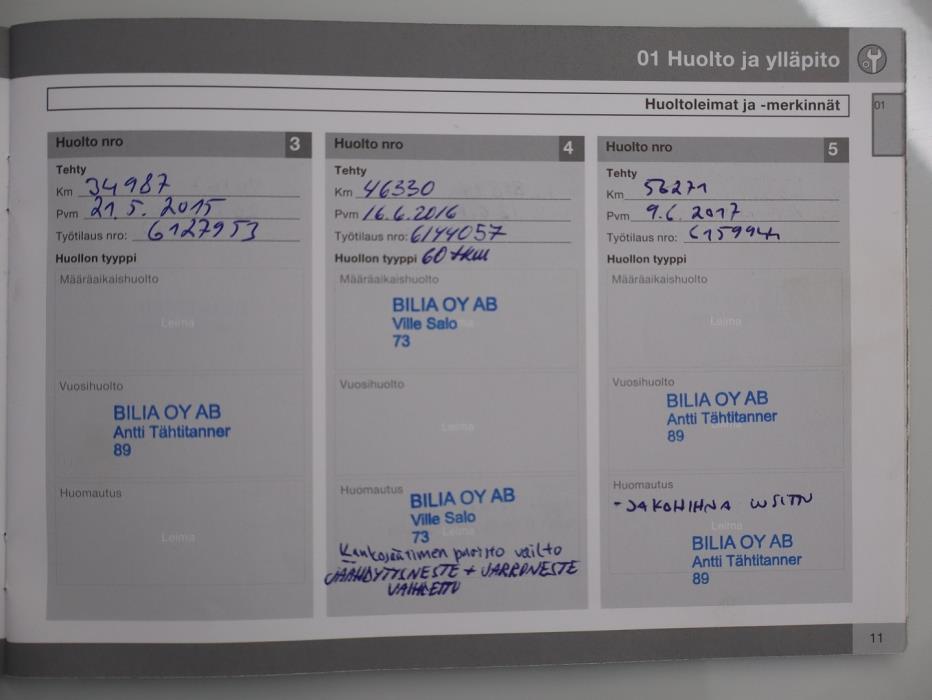 01 Huolto ja ylläpito
Huoltoleimat ja -merkinnät
01
Huolto nro 3
Tehty
Km 34987
Pvm 21.5. 2015
Työtilaus nro: 6127953
Huollon tyyppi
Määräaikaishuolto
Leima
Vuosihuolto
BILIA OY AB
Antti Tähtitanner
89
Huomautus
Leima
Huolto nro 4
Tehty
Km 46330
Pvm 16.6.2016
Työtilaus nro: 6144057
Huollon tyyppi 60 tkm
Määräaikaishuolto
BILIA OY AB
Ville Salo
73
Vuosihuolto
Leima
Huomautus
BILIA OY AB
Ville Salo
73
vaihto
JÄÄHDYTYSNESTE + JARRUNESTE
VAIHDETTU
Huolto nro 5
Tehty
Km 56271
Pvm 9.6. 2017
Työtilaus nro:
Huollon tyyppi
Määräaikaishuolto
Leima
Vuosihuolto
BILIA OY AB
Antti Tähtitanner
89
Huomautus
- JAKOHIHNA UUSITTU
Leima
BILIA OY AB
Antti Tähtitanner
89
11